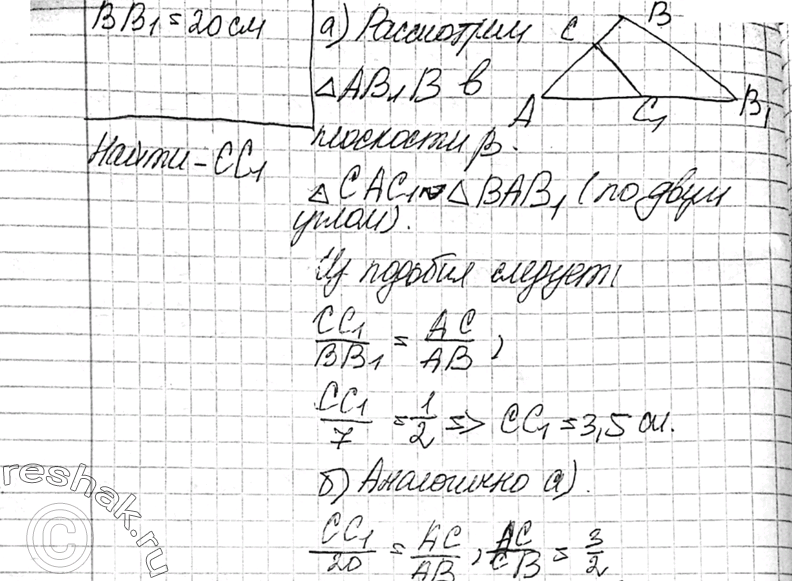 BB₁ = 20 см
Найти - CC₁
а) Рассмотрим
△AB₁B в
плоскости β.
△CAC₁ ~ △BAB₁ (по двум
углам).
Из подобия следует:
CC₁/BB₁ = AC/AB,
CC₁/7 = 1/2 => CC₁ = 3,5 см.
б) Аналогично а).
CC₁/20 = AC/AB, AC/CB = 3/2
B
C
A
C₁
B₁
©reshak.ru